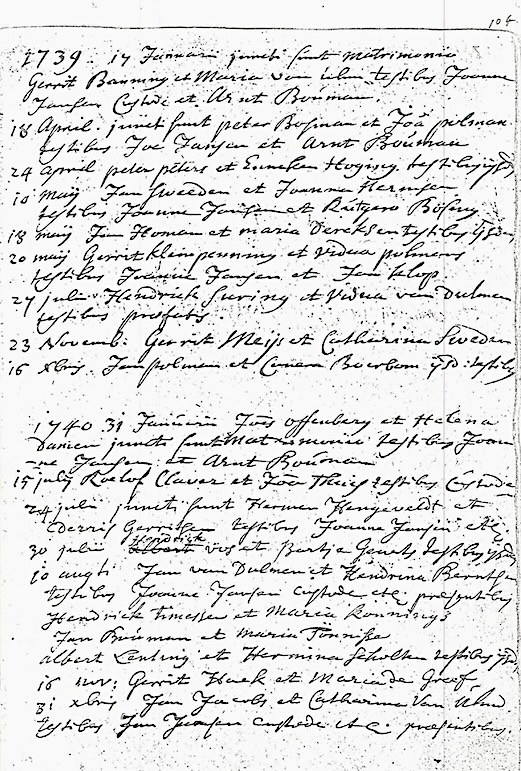 104
1739. 14 Januarii juncti sunt matrimonio
Gerrit Banning et Maria van testibus Joanne
Jansen Custode et Arnt Bouman.
18 April. juncti sunt peter Bosman et Joã polman
testibus Joe Jansen et Arnt Bouman
24 april peter peters et Enneken Hoging testibus ijsd
10 maij Jan Sweeden et Joanna Hermsen
testibus Joanne Jansen et Rutgero Bosing
18 maij Jan Homan et maria Dercksen testibus ijsdem
20 maij Gerrit kleinpenning et vidua polmers
testibus Joanne Jansen et Jan klop
27 julii Hendrick Suring et Vidua van Dulmen
testibus
23 Novemb: Gerrit Meijs et Catharina Sweden
16 xbris. Jan polman et Boerbom ijsd: testib
1740 31 Januarii Joes offenberg et Helena
Damen juncti sunt Matrimonio testibus Joan
ne Jansen et Arnt Bouman
15 julij Roelof Claver et Joã Theis testibus Custode
24 julii juncti sunt Hermen Hengeveldt et
Derris Gerrissen testibus Joanne Jansen etc
30 julii Hendrick vos et Bartje testibus ijsd
10 augti Jan van Dulmen et Hendrina Berntsen
testibus Joanne Jansen custode etc præsentibus
Hendrick timessen et Maria Konnings
Jan Bouman et Maria Tonnisse
albert Lenting et Hermina Scholten testibus ijsd
16 nov: Gerrit Haek et Maria de Greef
31 xbris Jan Jacobs et Catharina Van
testibus Jan Jansen custode etc. præsentibus.